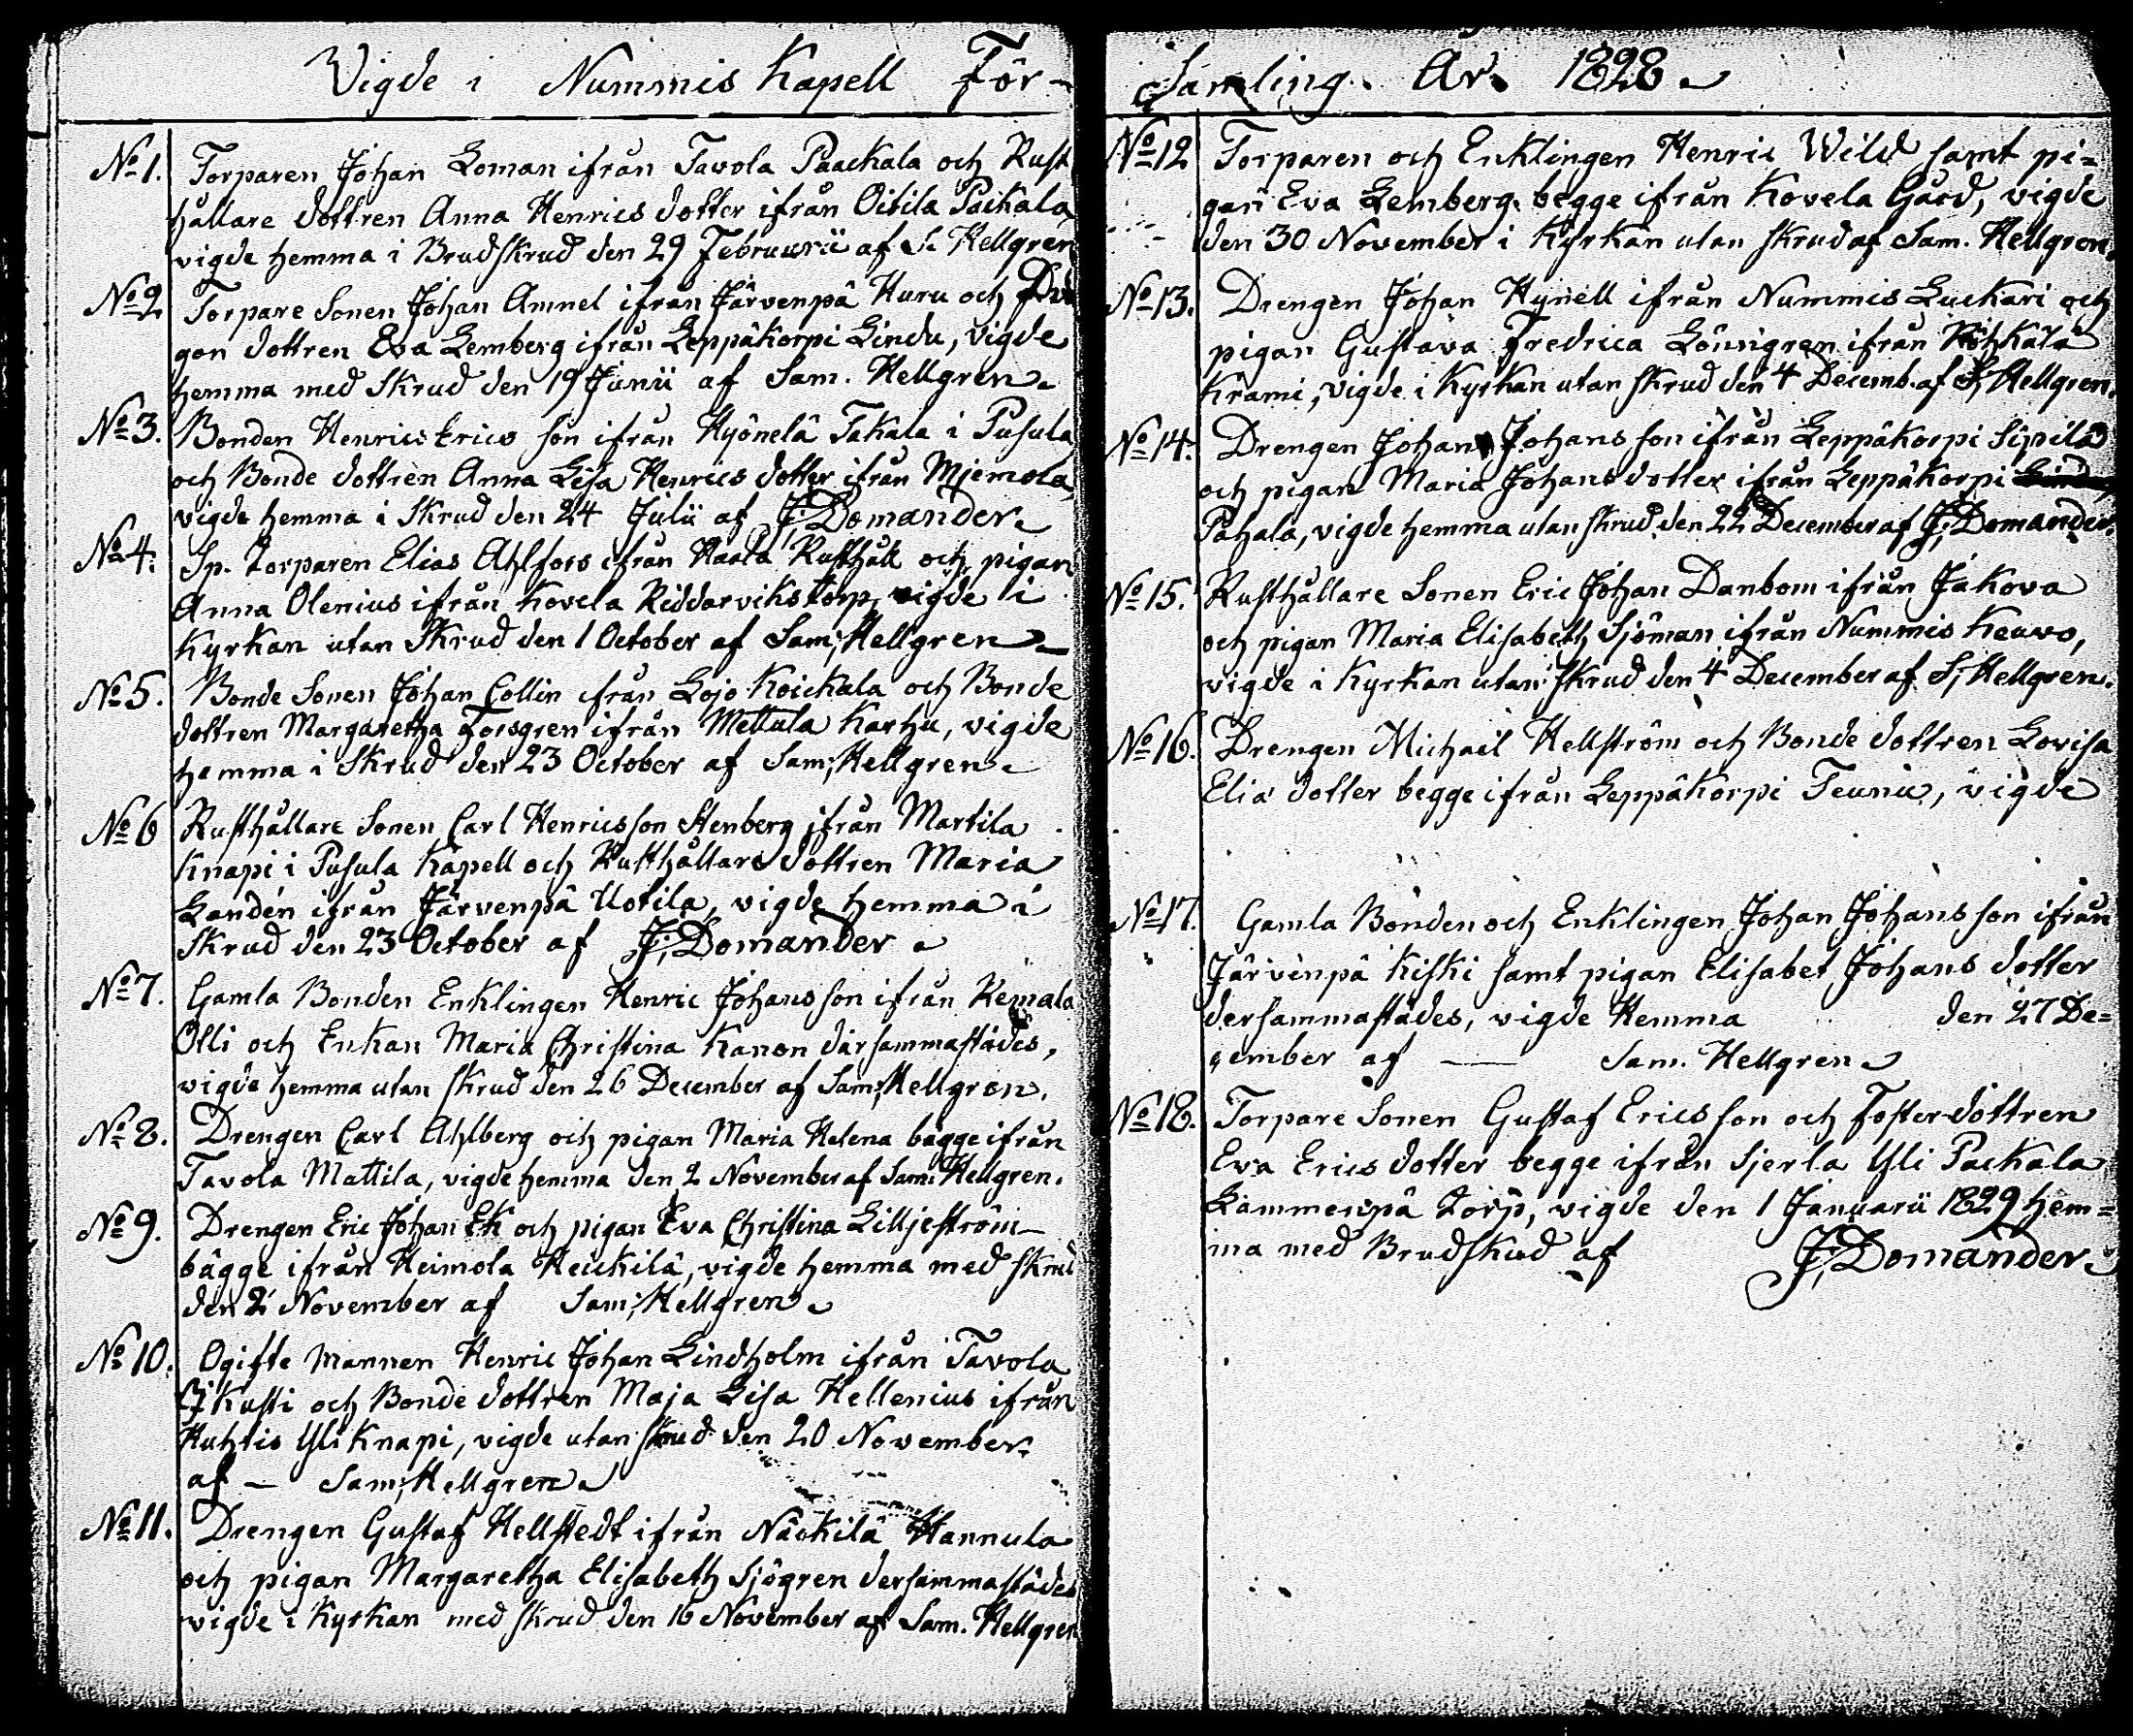 Vigde i Nummis Kapell För-
N:o 1. Torparen Johan Loman ifrån Tavola Paackala och Rust
hållare dottren Anna Henrics dotter ifrån Oitila Packala
vigde hemma i Brudskrud den 29 Februarii af S. Hellgren
N:o 2 Torpare Sonen Johan Ammel ifrån Järvenpä Huru och
gon dottren Eva Lemberg ifrån Leppäkorpi Lindu, vigde
hemma med Skrud den 19 Junii af Sam. Hellgren.
N:o 3. Bonden Henric Erics son ifrån Hyönelä Takala i Pusula
och Bonde dottren Anna Lisa Henrics dotter ifrån Mjemola,
vigde hemma i Skrud den 24 Julii af J: Domander.
N:o 4. Sp. Torparen Elias Ahlfors ifrån Haala Rusthåll och pigan
Anna Olenius ifrån Kovela Riddarvikstorp, vigde i
Kyrkan utan Skrud den 1 October af Sam; Hellgren.
N:o 5. Bonde Sonen Johan Collin ifrån Lojo Koickala och Bonde
dottren Margaretha Forsgren ifrån Mettula Karhu, vigde
hemma i Skrud den 23 October af Sam; Hellgren.
N:o 6 Rusthållare Sonen Carl Henricsson Stenberg ifrån Martila
Knapi i Pusula Kapell och Rusthållare dottren Maria
Landén ifrån Järvenpä Uotila, vigde hemma i
Skrud den 23 October af J; Domander.
N:o 7. Gamla Bonden Enklingen Henric Johansson ifrån Remala
Olli och Enkan Maria Christina Kanon därsammastädes,
vigde hemma utan skrud den 26 December af Sam; Hellgren.
N:o 8. Drengen Carl Ahlberg och pigan Maria Helena bägge ifrån
Tavola Mattila, vigde hemma den 2 November af Sam: Hellgren.
N:o 9. Drengen Eric Johan Ek och pigan Eva Christina Lilljeström
bägge ifrån Heimola Heickilä, vigde hemma med skrud
den 2 November af Sam; Hellgren.
N:o 10. Ogifte Mannen Henric Johan Lindholm ifrån Tavola
Kusti och Bonde dottren Maja Lisa Hellenius ifrån
Huhtis Yli Knapi, vigde utan skrud den 20 November
af — Sam; Hellgren.
N:o 11. Drengen Gustaf Hellstedt ifrån Näckilä Hannula
och pigan Margaretha Elisabeth Sjögren dersammastädes
vigde i Kyrkan med skrud den 16 November af Sam. Hellgren
Samling. År. 1828.
N:o 12 Torparen och Enklingen Henric Wild samt pi=
gan Eva Lemberg. begge ifrån Kovela Gård, vigde
den 30 November i Kyrkan utan skrud af Sam. Hellgren.
N:o 13. Drengen Johan Hynell ifrån Nummis Luckari och
pigan Gustava Fredrica Lönnigren ifrån
Krami, vigde i Kyrkan utan skrud den 4 Decemb. af S; Hellgren.
N:o 14. Drengen Johan Johans son ifrån Leppäkorpi Sipilä
och pigan Maria Johans dotter ifrån Leppäkorpi
Pahala, vigde hemma utan skrud den 22 December af J; Domander.
N:o 15. Rusthållare Sonen Eric Johan Danbom ifrån Jakova
och pigan Maria Elisabeth Sjöman ifrån Nummis Keuwo,
vigde i Kyrkan utan skrud den 4 December af S; Hellgren.
N:o 16. Drengen Michaël Hellström och Bonde dottren Lovisa
Elia dotter begge ifrån Leppäkorpi Teunu, vigde
N:o 17. Gamla Bonden och Enklingen Johan Johans son ifrån
Järvenpä Kiski samt pigan Elisabet Johans dotter
dersammastädes, vigde Hemma den 27 De=
cember af — Sam. Hellgren.
N:o 18. Torpare Sonen Gustaf Ericsson och Foster dottren
Eva Erics dotter begge ifrån Sjerla Yli Packala
Lammenpä torp, vigde den 1 Januarii 1829 hem=
ma med Brudskud af J; Domander.